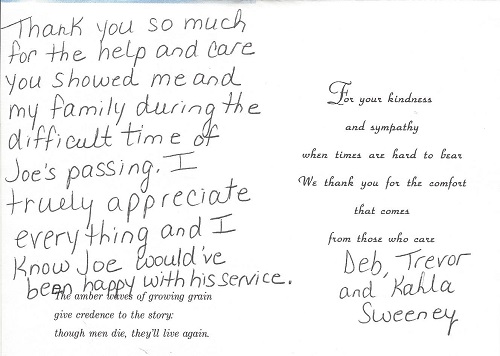 Thank you so much
for the help and care
you showed me and
my family during the
difficult time of
Joe's passing. I
truely appreciate
everything and I
know Joe would've
been happy with his service.
The amber waves of growing grain
give credence to the story:
though men die, they'll live again.
For your kindness
and sympathy
when times are hard to bear
We thank you for the comfort
that comes
from those who care
Deb, Trevor
and Kahla
Sweeney